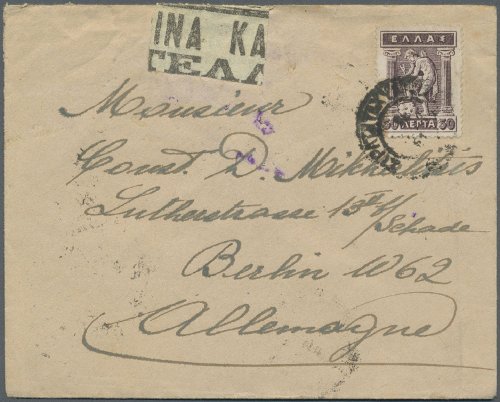 ΙΝΑ ΚΑ
ΤΕΛΛ
ΕΛΛΑΣ
30 ΛΕΠΤΑ 30
Monsieur
Const. D.
Lutherstrasse 13
Schade
Berlin W62
Allemagne